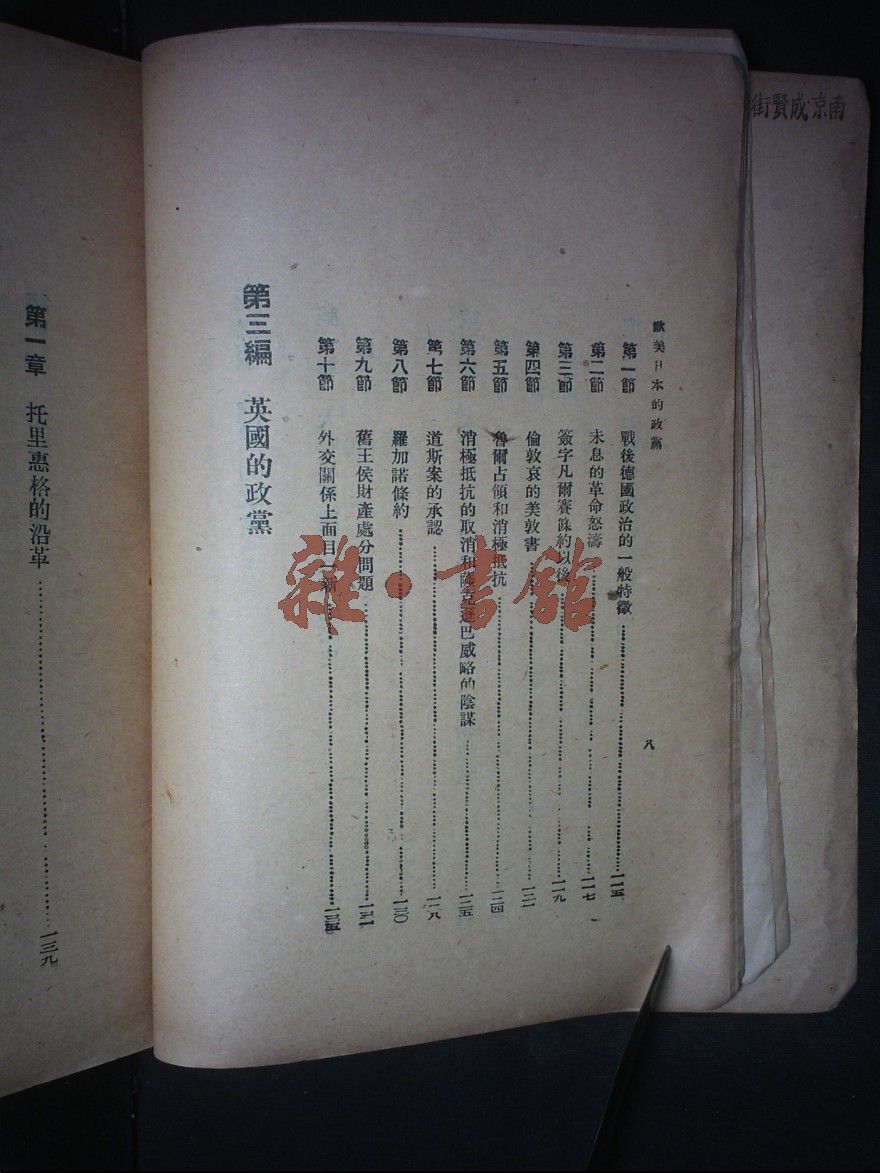 南京·成賢街
歐美日本的政黨
八
第一節 戰後德國政治的一般特徵 一一五
第二節 未息的革命怒濤 一一七
第三節 簽字凡爾賽條約以後 一一九
第四節 倫敦哀的美敦書 一二一
第五節 魯爾占領和消極抵抗 一二四
第六節 消極抵抗的取消和薩克遜巴威略的陰謀 一二五
第七節 道斯案的承認 一二八
第八節 羅加諾條約 一三〇
第九節 舊王侯財產處分問題 一三二
第十節 外交關係上面目一新
第三編 英國的政黨
第一章 托里惠格的沿革 一三九
雜·書館